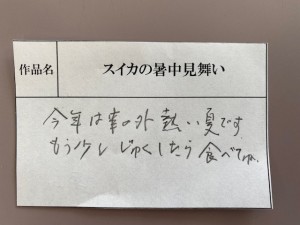 作品名 スイカの暑中見舞い
今年は事の外熱い夏です
もう少しじゅくしたら食べてね。